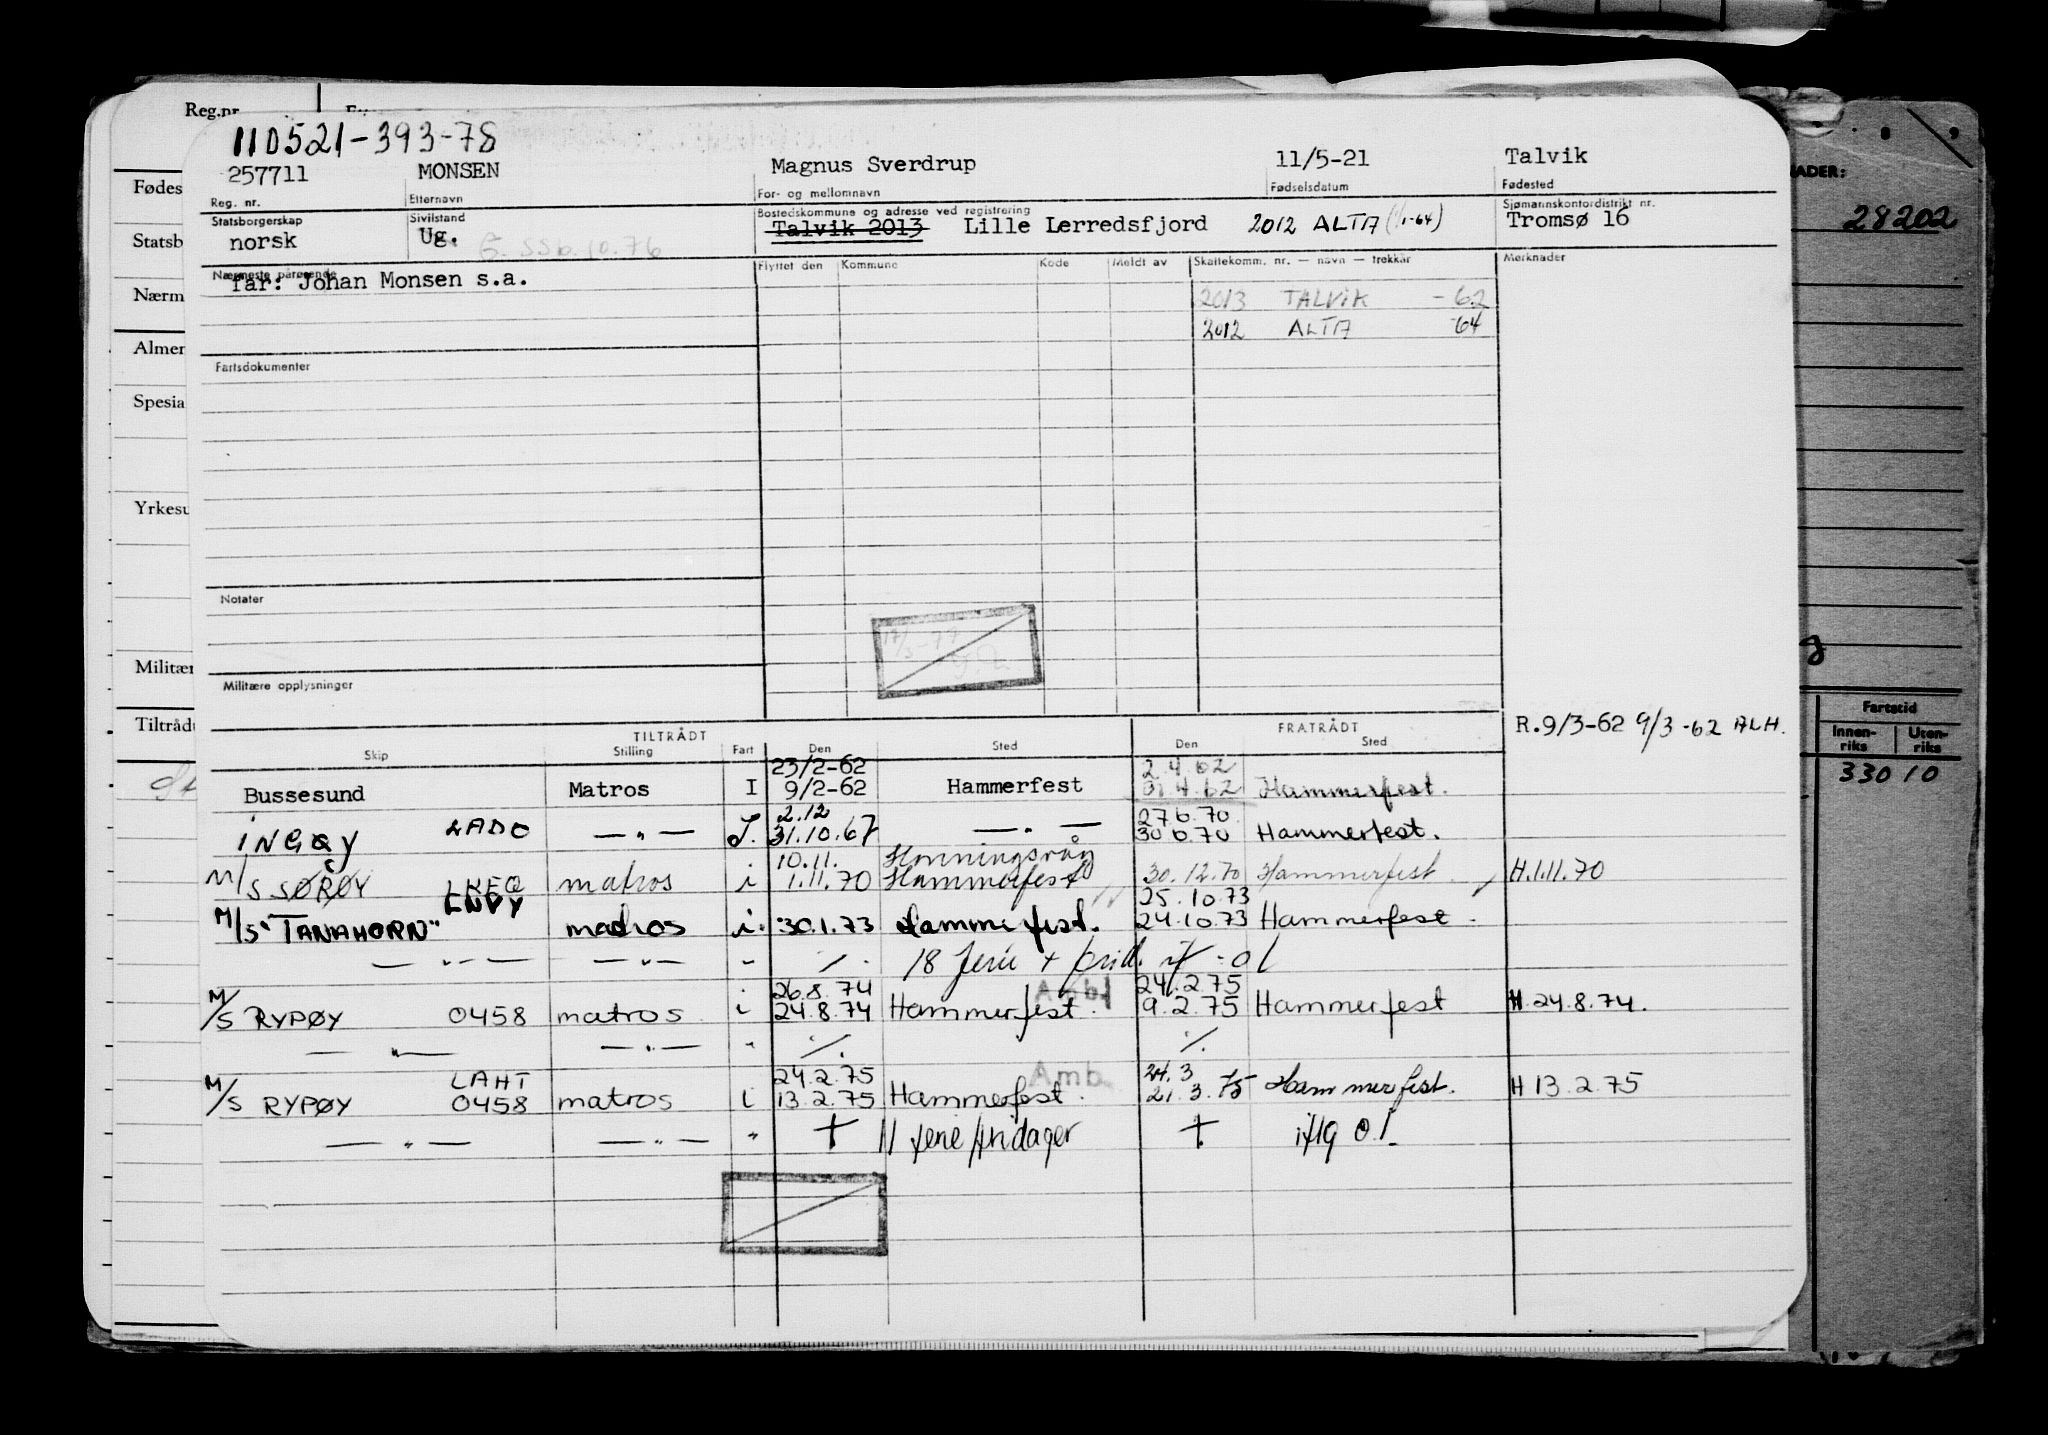 Reg.nr.
110521-393-78
257711 MONSEN Magnus Sverdrup 11/5-21 Talvik
Reg. nr. Etternavn For- og mellomnavn Fødselsdatum Fødested
Statsborgerskap Sivilstand Bostedskommune og adresse ved registrering Sjømannskontordistrikt nr.
norsk Ug. Talvik 2013 Lille Lerredsfjord 2012 ALTA (1/1-64) Tromsø 16
Nærmeste pårørende Flyttet den Kommune Kode Meldt av Skattekomm. nr. — navn — trekkår Merknader
far: Johan Monsen s.a.
2013 TALVIK -62
2012 ALTA 64
Fartsdokumenter
Notater
Militære opplysninger
Fødes
Statsb
Nærm
Almer
Spesia
Yrkesu
Militær
Tiltrådt
NADER:
28202
Fartstid
Innen-riks Uten-riks
330 10
R.9/3-62 9/3-62 ALH.
TILTRÅDT FRATRÅDT
Skip Stilling Fart Den Sted Den Sted
23/2-62 2.4.62
Bussesund Matros I 9/2-62 Hammerfest 31.4.62 Hammerfest.
2.12 27.6.70
INGØY LADO — " — I. 31.10.67 — " — 30.6.70 Hammerfest.
10.11. Honningsvåg
M/S SØRØY LKEQ matros i 1.11.70 Hammerfest 30.12.70 Hammerfest H.1.11.70
LNVY 25.10.73
M/S "TANAHORN" matros i. 30.1.73 Hammerfest. 24.10.73 Hammerfest.
— " — — " — " ./. 18 ferie + frid.
26.8.74 Amb 24.2.75
M/S RYPØY 0458 matros i 24.8.74 Hammerfest. 9.2.75 Hammerfest H 24.8.74.
— " — — " — " ./. ./.
LAHT 24.2.75 Amb. 24.3
M/S RYPØY 0458 matros i 13.2.75 Hammerfest. 21.3.75 Hammerfest. H 13.2.75
— " — — " — "  11 ferie fridager